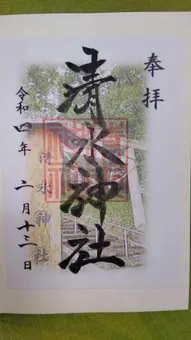 奉拝
清水神社
清水神社
令和四年 二月十三日